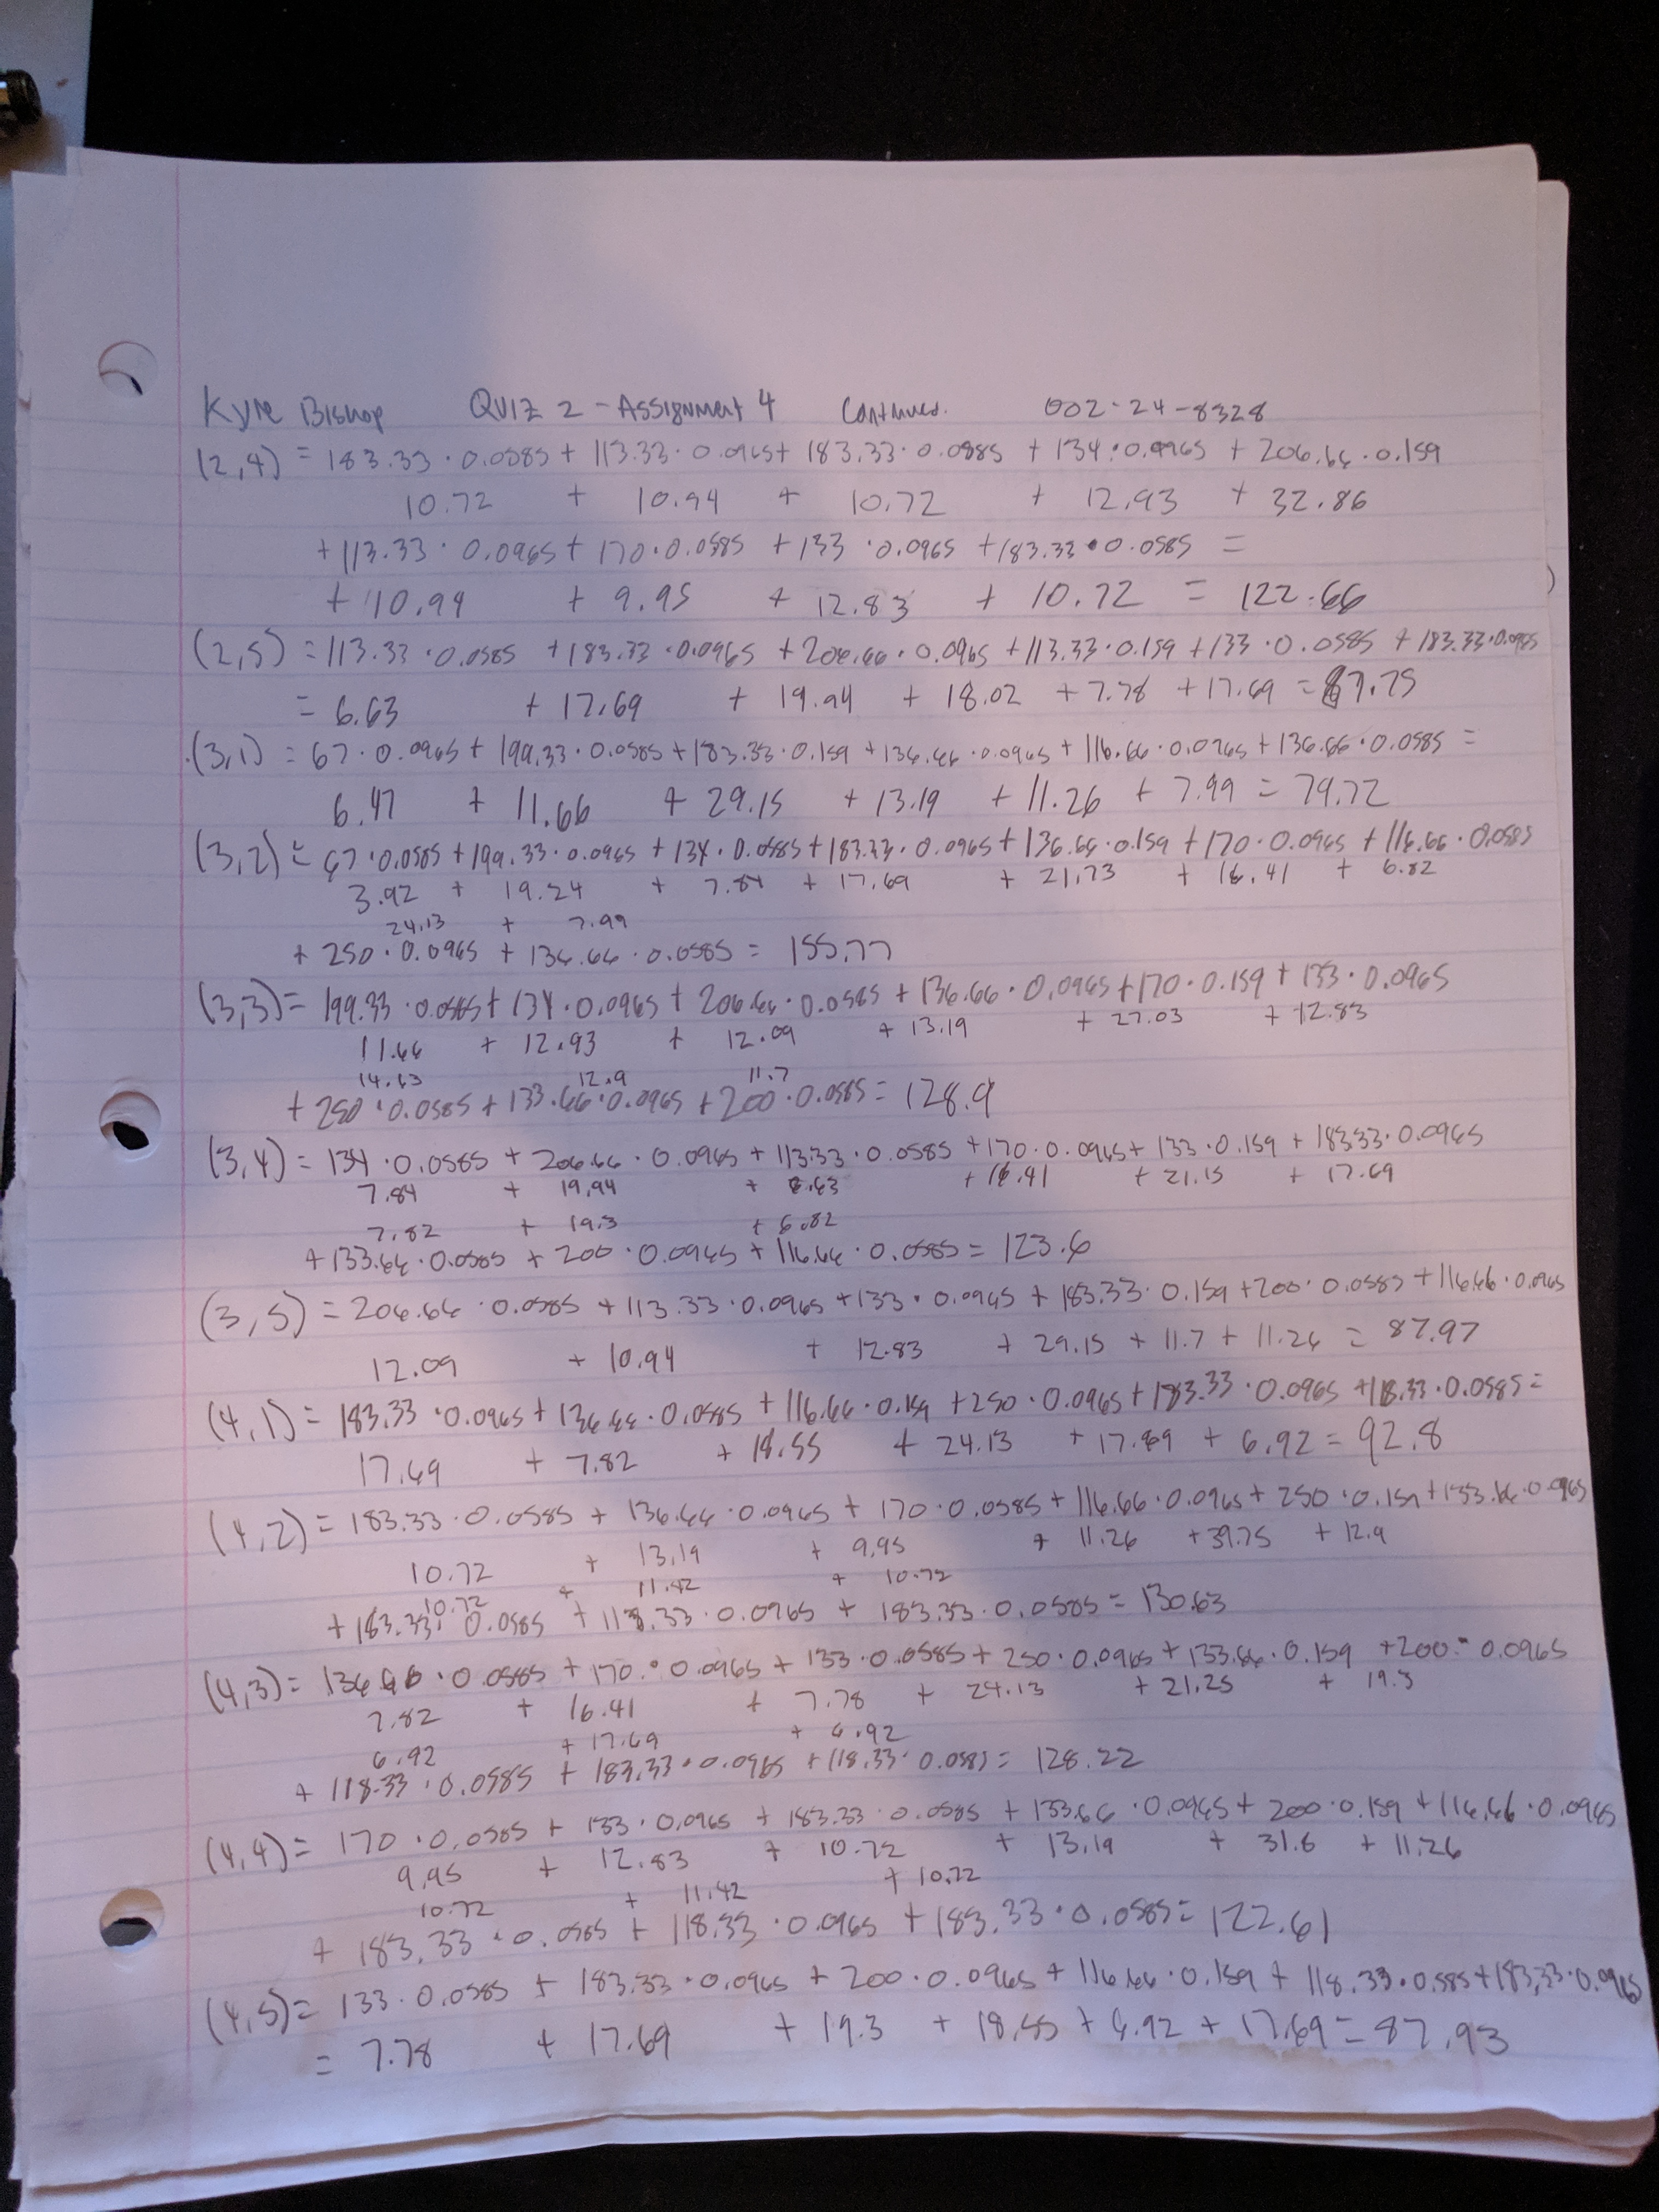 Kyle Bishop QUIZ 2 - Assignment 4 Continued. 002-24-8328
(2,4) = 183.33 · 0.0585 + 113.33 · 0.0965 + 183.33 · 0.0585 + 134 · 0.0965 + 206.66 · 0.159
10.72 + 10.94 + 10.72 + 12.93 + 32.86
+ 113.33 · 0.0965 + 170 · 0.0585 + 133 · 0.0965 + 183.33 · 0.0585 =
+ 10.94 + 9.95 + 12.83 + 10.72 = 122.66
(2,5) = 113.33 · 0.0585 + 183.33 · 0.0965 + 206.66 · 0.0965 + 113.33 · 0.159 + 133 · 0.0585 + 183.33 · 0.0965
= 6.63 + 17.69 + 19.94 + 18.02 + 7.78 + 17.69 = 87.75
(3,1) = 67 · 0.0965 + 199.33 · 0.0585 + 183.33 · 0.159 + 136.66 · 0.0965 + 116.66 · 0.0965 + 136.66 · 0.0585 =
6.47 + 11.66 + 29.15 + 13.19 + 11.26 + 7.99 = 79.72
(3,2) = 67 · 0.0585 + 199.33 · 0.0965 + 134 · 0.0585 + 183.33 · 0.0965 + 136.66 · 0.159 + 170 · 0.0965 + 116.66 · 0.0585
3.92 + 19.24 + 7.84 + 17.69 + 21.73 + 16.41 + 6.82
24.13 + 7.99
+ 250 · 0.0965 + 136.66 · 0.0585 = 155.77
(3,3) = 199.33 · 0.0585 + 134 · 0.0965 + 206.66 · 0.0585 + 136.66 · 0.0965 + 170 · 0.159 + 133 · 0.0965
11.66 + 12.93 + 12.09 + 13.19 + 27.03 + 12.83
14.63 12.9 11.7
+ 250 · 0.0585 + 133.66 · 0.0965 + 200 · 0.0585 = 128.9
(3,4) = 134 · 0.0585 + 206.66 · 0.0965 + 113.33 · 0.0585 + 170 · 0.0965 + 133 · 0.159 + 183.33 · 0.0965
7.84 + 19.94 + 6.63 + 16.41 + 21.15 + 17.69
7.82 + 19.3 + 6.82
+ 133.66 · 0.0585 + 200 · 0.0965 + 116.66 · 0.0585 = 123.6
(3,5) = 206.66 · 0.0585 + 113.33 · 0.0965 + 133 · 0.0965 + 183.33 · 0.159 + 200 · 0.0585 + 116.66 · 0.0965
12.09 + 10.94 + 12.83 + 29.15 + 11.7 + 11.26 = 87.97
(4,1) = 183.33 · 0.0965 + 136.66 · 0.0585 + 116.66 · 0.159 + 250 · 0.0965 + 183.33 · 0.0965 + 118.33 · 0.0585 =
17.69 + 7.82 + 18.55 + 24.13 + 17.69 + 6.92 = 92.8
(4,2) = 183.33 · 0.0585 + 136.66 · 0.0965 + 170 · 0.0585 + 116.66 · 0.0965 + 250 · 0.159 + 133.66 · 0.0965
10.72 + 13.19 + 9.95 + 11.26 + 39.75 + 12.9
10.72 + 11.42 + 10.72
+ 183.33 · 0.0585 + 118.33 · 0.0965 + 183.33 · 0.0585 = 130.63
(4,3) = 136.66 · 0.0585 + 170 · 0.0965 + 133 · 0.0585 + 250 · 0.0965 + 133.66 · 0.159 + 200 · 0.0965
7.82 + 16.41 + 7.78 + 24.13 + 21.25 + 19.3
6.92 + 17.69 + 6.92
+ 118.33 · 0.0585 + 183.33 · 0.0965 + 118.33 · 0.0585 = 128.22
(4,4) = 170 · 0.0585 + 133 · 0.0965 + 183.33 · 0.0585 + 133.66 · 0.0965 + 200 · 0.159 + 116.66 · 0.0965
9.95 + 12.83 + 10.72 + 13.19 + 31.6 + 11.26
10.72 + 11.42 + 10.72
+ 183.33 · 0.0585 + 118.33 · 0.0965 + 183.33 · 0.0585 = 122.61
(4,5) = 133 · 0.0585 + 183.33 · 0.0965 + 200 · 0.0965 + 116.66 · 0.159 + 118.33 · 0.585 + 183.33 · 0.0965
= 7.78 + 17.69 + 19.3 + 18.55 + 6.92 + 17.69 = 87.93